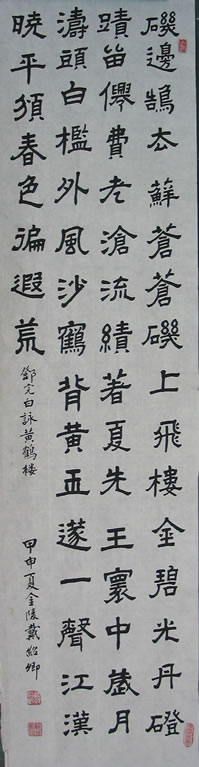 磯邊鵠去蘚蒼蒼磯上飛樓金碧光丹磴
蹟留僊費老滄流績著夏先王寰中歲月
濤頭白檻外風沙鶴背黃玉篴一聲江漢
曉平頒春色徧遐荒
鄧完白詠黃鶴楼
甲申夏金陵戴紹卿